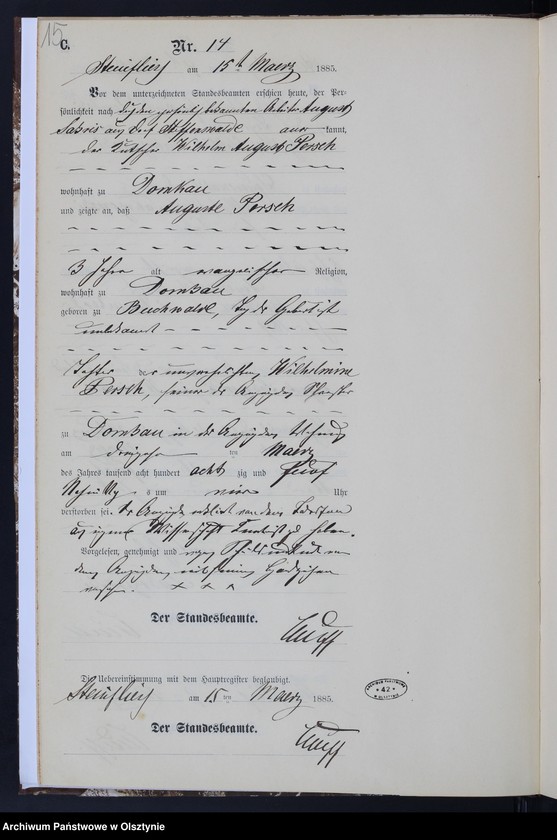 15
C.
Nr. 14
am 15 Maerz 1885.
Vor dem unterzeichneten Standesbeamten erschien heute, der Per-
sönlichkeit nach durch den persönlich bekannten Arbeiter August
aus kannt,
der Kutscher Wilhelm August Persch
wohnhaft zu Domkau
und zeigte an, daß Auguste Persch
3 Jahre alt evangelischer Religion,
wohnhaft zu Domkau
geboren zu Buchwalde, Tag der Geburt ist
unbekannt
Tochter der unverehelichten Wilhelmine
Persch, seiner des Anzeigenden Schwester
zu Domkau in des Anzeigenden Wohnung
am dreizehn ten Maerz
des Jahres tausend acht hundert acht zig und fuenf
Nachmittag s um vier Uhr
verstorben sei. Der Anzeigende erklaert von dem Todesfall
aus eigener Wissenschaft Kenntniß zu haben.
Vorgelesen, genehmigt und wegen Schreibensunkunde von
dem Anzeigenden mit seinem Handzeichen
versehen. x x x
Der Standesbeamte.
Die Uebereinstimmung mit dem Hauptregister beglaubigt.
am 15 ten Maerz 1885.
Der Standesbeamte.
ARCHIWUM PAŃSTWOWE
* 42 *
W OLSZTYNIE
Archiwum Państwowe w Olsztynie